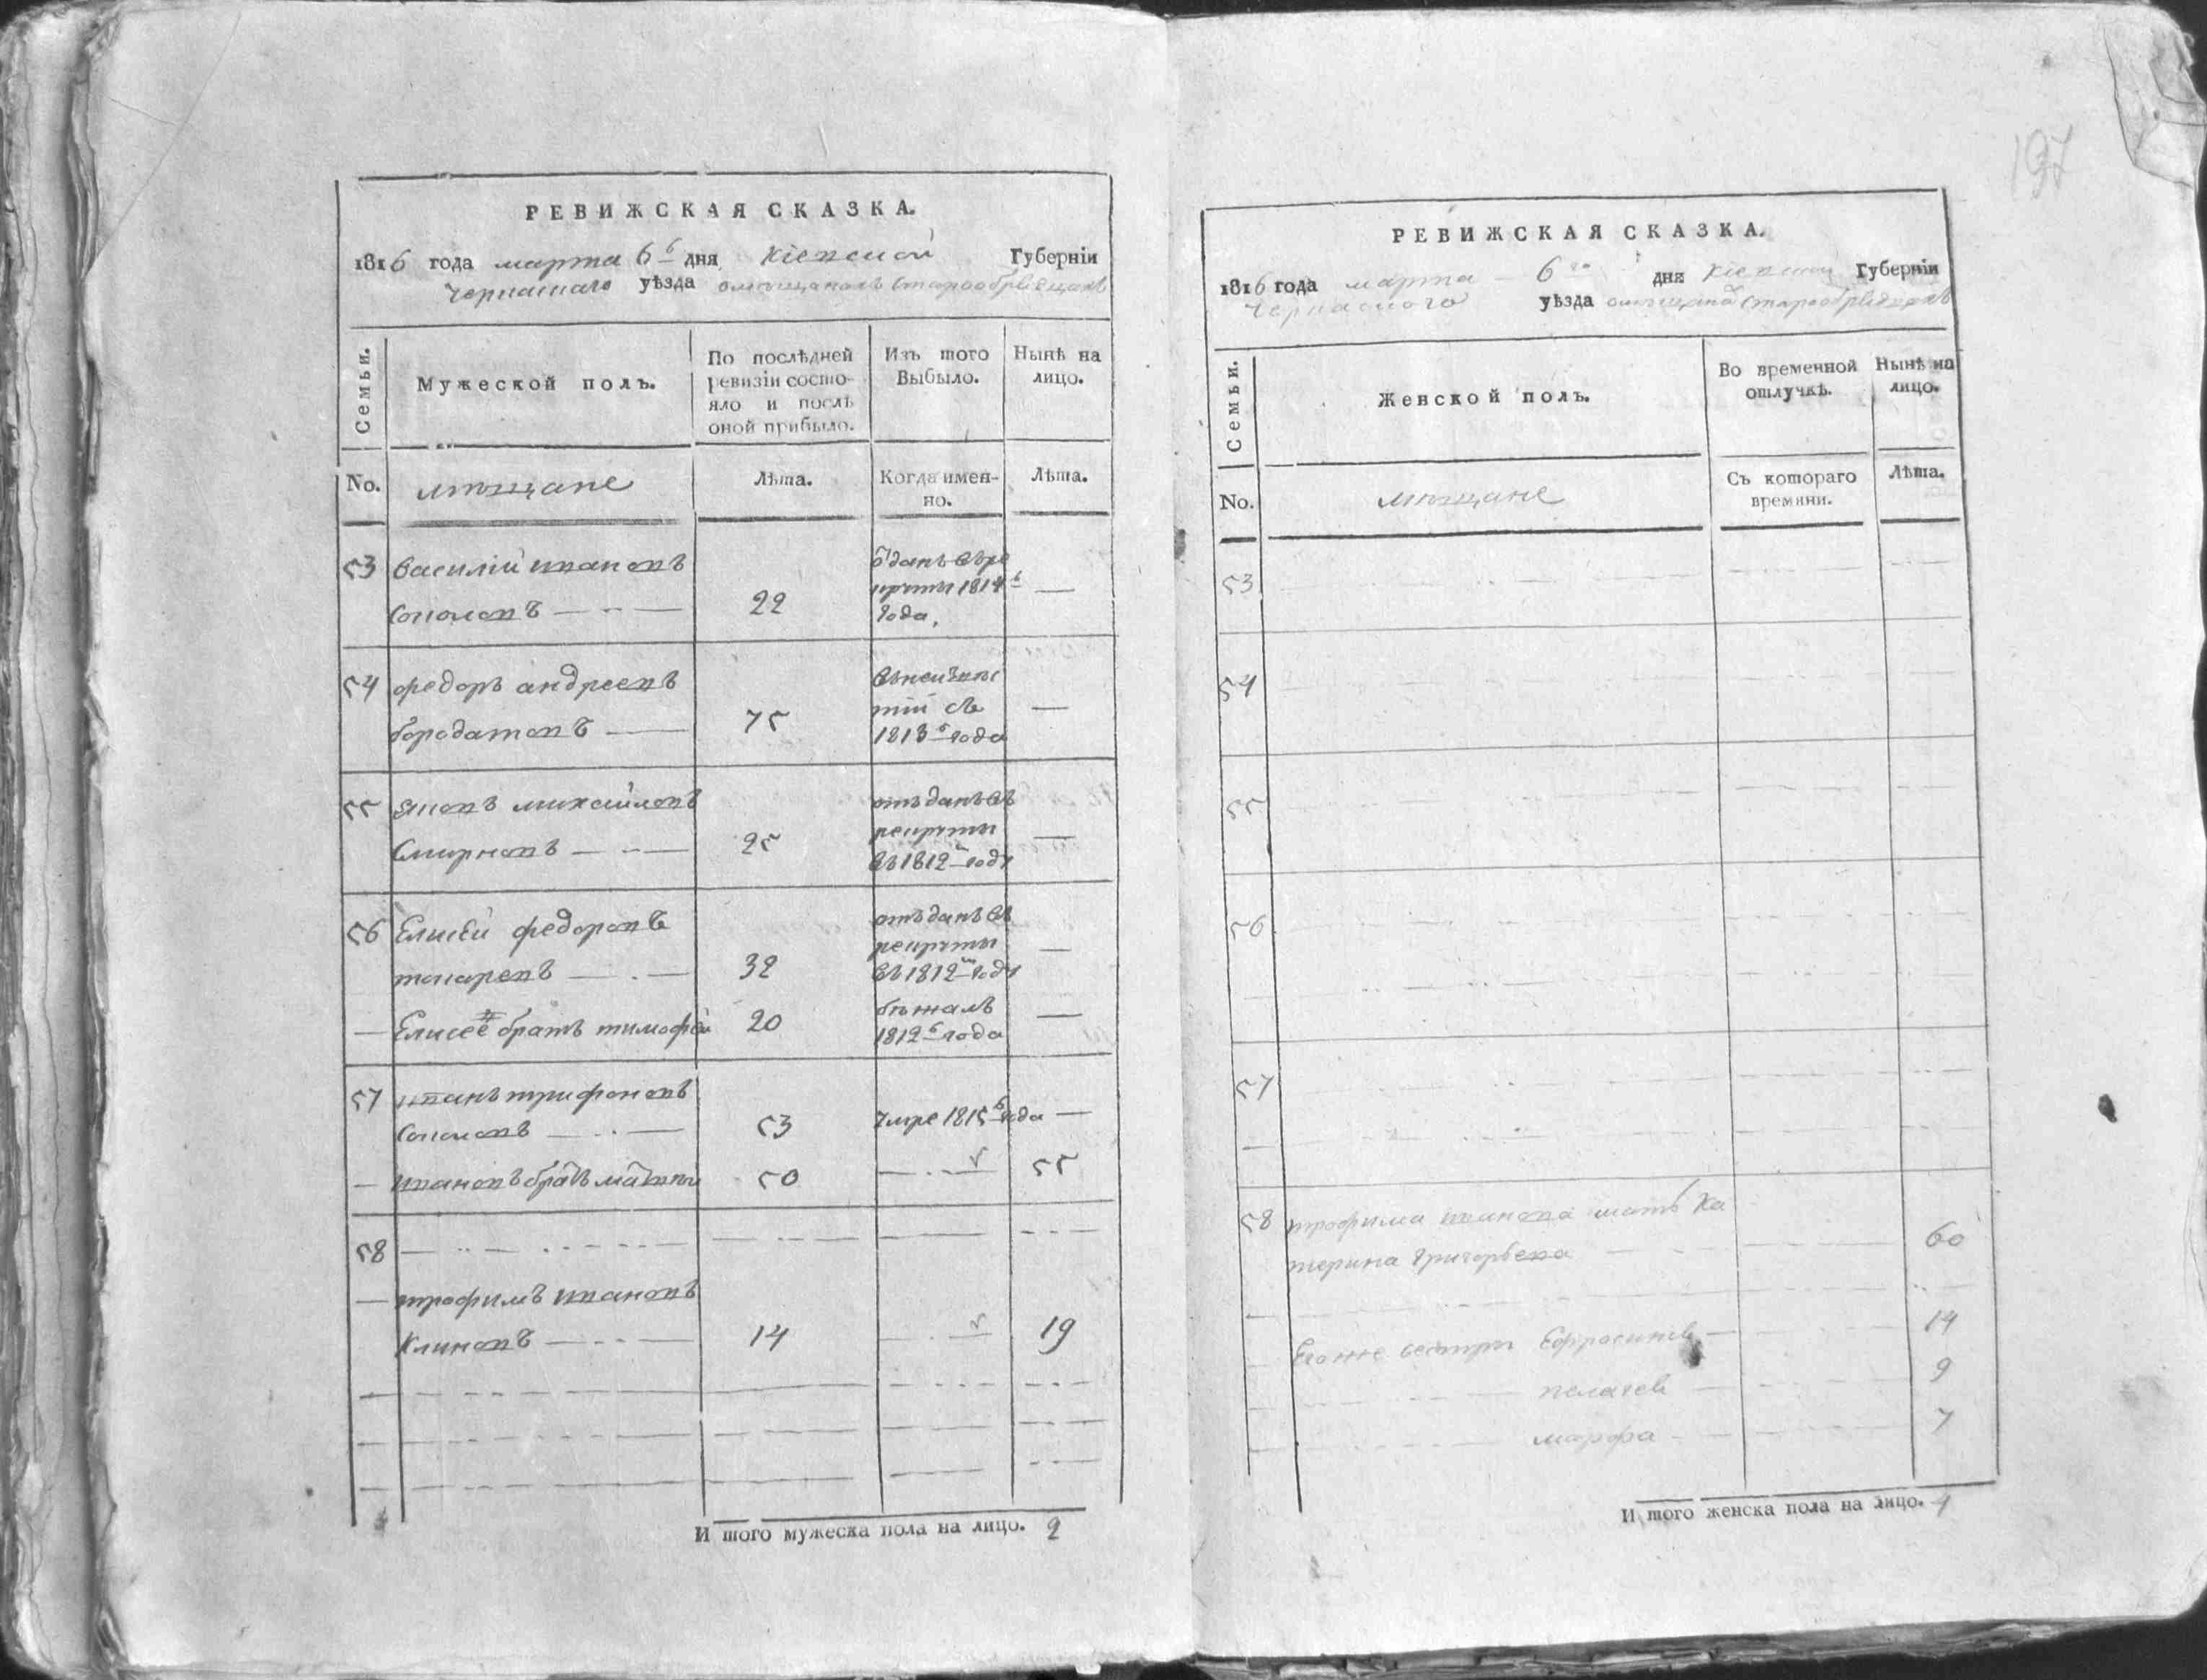 197
РЕВИЖСКАЯ СКАЗКА.
1816 года марта 6 дня кіевской Губерніи
черкаскаго уѣзда о мѣщанахъ старообрядцахъ
Семьи.
Мужеской полъ.
По послѣдней
ревизіи состо-
яло и послѣ
оной прибыло.
Изъ того
Выбыло.
Нынѣ на
лицо.
No.
мѣщане
Лѣта.
Когда имен-
но.
Лѣта.
53 василій ивановъ
соколовъ 22
отданъ въ ре
круты 1814
года,
54 федоръ андреевъ
бородатовъ 75
1813 года
55 яковъ михайловъ
Смирновъ 25
отъданъ въ
рекруты
въ 1812 году
56 Елисей федоровъ
токаревъ 32
отъданъ въ
рекруты
въ 1812 году
Елисеев братъ тимофей 20
бѣжалъ
1812 года
57 иванъ трифоновъ
соколовъ 53 умре 1815 года
ивановъ братъ матвей 50 55
58
трофимъ ивановъ
Климовъ 14 19
И того мужеска пола на лицо. 2
РЕВИЖСКАЯ СКАЗКА.
1816 года марта 6 го дня кіевской Губерніи
черкаского уѣзда о мѣщанахъ старообрядцахъ
Семьи.
Женской полъ.
Во временной
отлучкѣ.
Нынѣ на
лицо.
No.
мѣщане
Съ котораго
времяни.
Лѣта.
53
54
55
56
57
58 трофима иванова мать ка
терина григорьева 60
Егоже сестры Ефросинья 14
пелагея 9
марфа 7
И того женска пола на лицо. 4